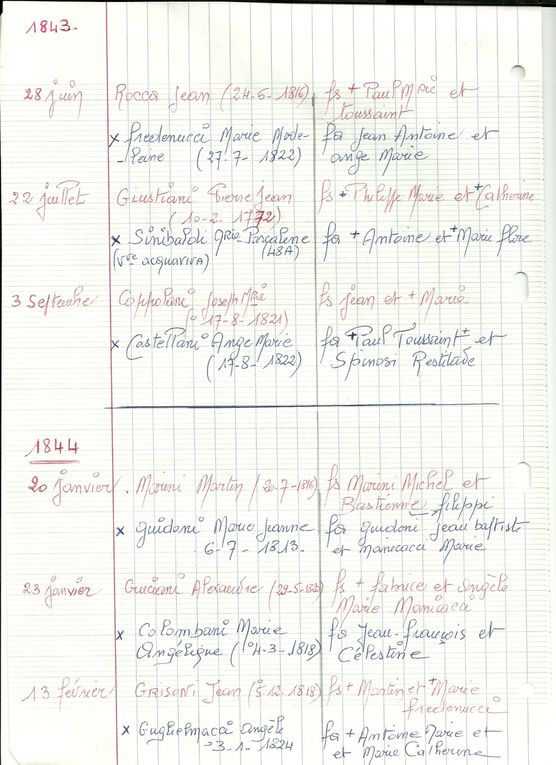 1843.
28 juin Rocca Jean (24-6-1816) fs + Paul Mrie et
toussaint
x fredenucci Marie Made- fa Jean Antoine et
-leine (27-7-1822) ange Marie
22 juillet Giustiani Pierre Jean fs + Philippe Marie et + Catherine
(10-2-1772)
x Sinibaldi Pascalene fa + Antoine et + Marie flore
(Vve acquaviva) (48A)
3 Septembre Coppolani Joseph Mrie fs Jean et + Marie
(° 17-8-1821)
x Castellani Ange Marie fa + Paul Toussaint + et
(17-8-1822) Spinosi Restitude
1844
20 janvier Marini Martin (20-7-1816) fs Marini Michel et
Bastienne filippi
x guidoni Marie Jeanne fa guidoni jean baptiste
6-7-1813. et manicacci Marie
23 janvier Alexandre fs + fabrice et Angèle
Marie Manicacci
x Colombani Marie fa Jean-françois et
Angélique (°4-3-1818) Célestine
13 février GRISONI Jean (5-12-1818) fs + Martin et + Marie
fredenucci
x Guglielmacci Angèle fa + Antoine Marie et
°3-1-1824 et Marie Catherine